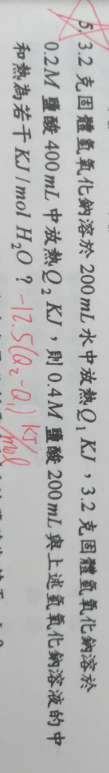 5. 3.2 克固體氫氧化鈉溶於 200mL 水中放熱 Q₁ KJ，3.2 克固體氫氧化鈉溶於
0.2M 鹽酸 400mL 中放熱 Q₂ KJ，則 0.4M 鹽酸 200mL 與上述氫氧化鈉溶液的中
和熱為若干 KJ/mol H₂O？ -12.5(Q₂-Q₁) KJ/mol